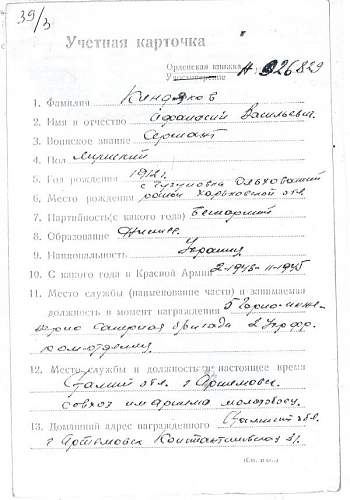 39/3
Учетная карточка
Орденская книжка
Удостоверение № 926829
1. Фамилия Киндяков
2. Имя и отчество Афанасий Васильевич.
3. Воинское звание Сержант
4. Пол Мужский
5. Год рождения 1912 г.
6. Место рождения район Харьковской обл.
7. Партийность(с какого года) Беспартий
8. Образование Низшее.
9. Национальность Украинец
10. С какого года в Красной Армии
11. Место службы (наименование части) и занимаемая
должность в момент награждения 5 Горно-инже-
нерно саперная бригада 2 Укр фр.
ком-отделения.
12. Место службы и должность в настоящее время
Сталинск обл. г Артемовск
совхоз им Артема
13. Домашний адрес награжденного Сталинск обл.
г Артемовск